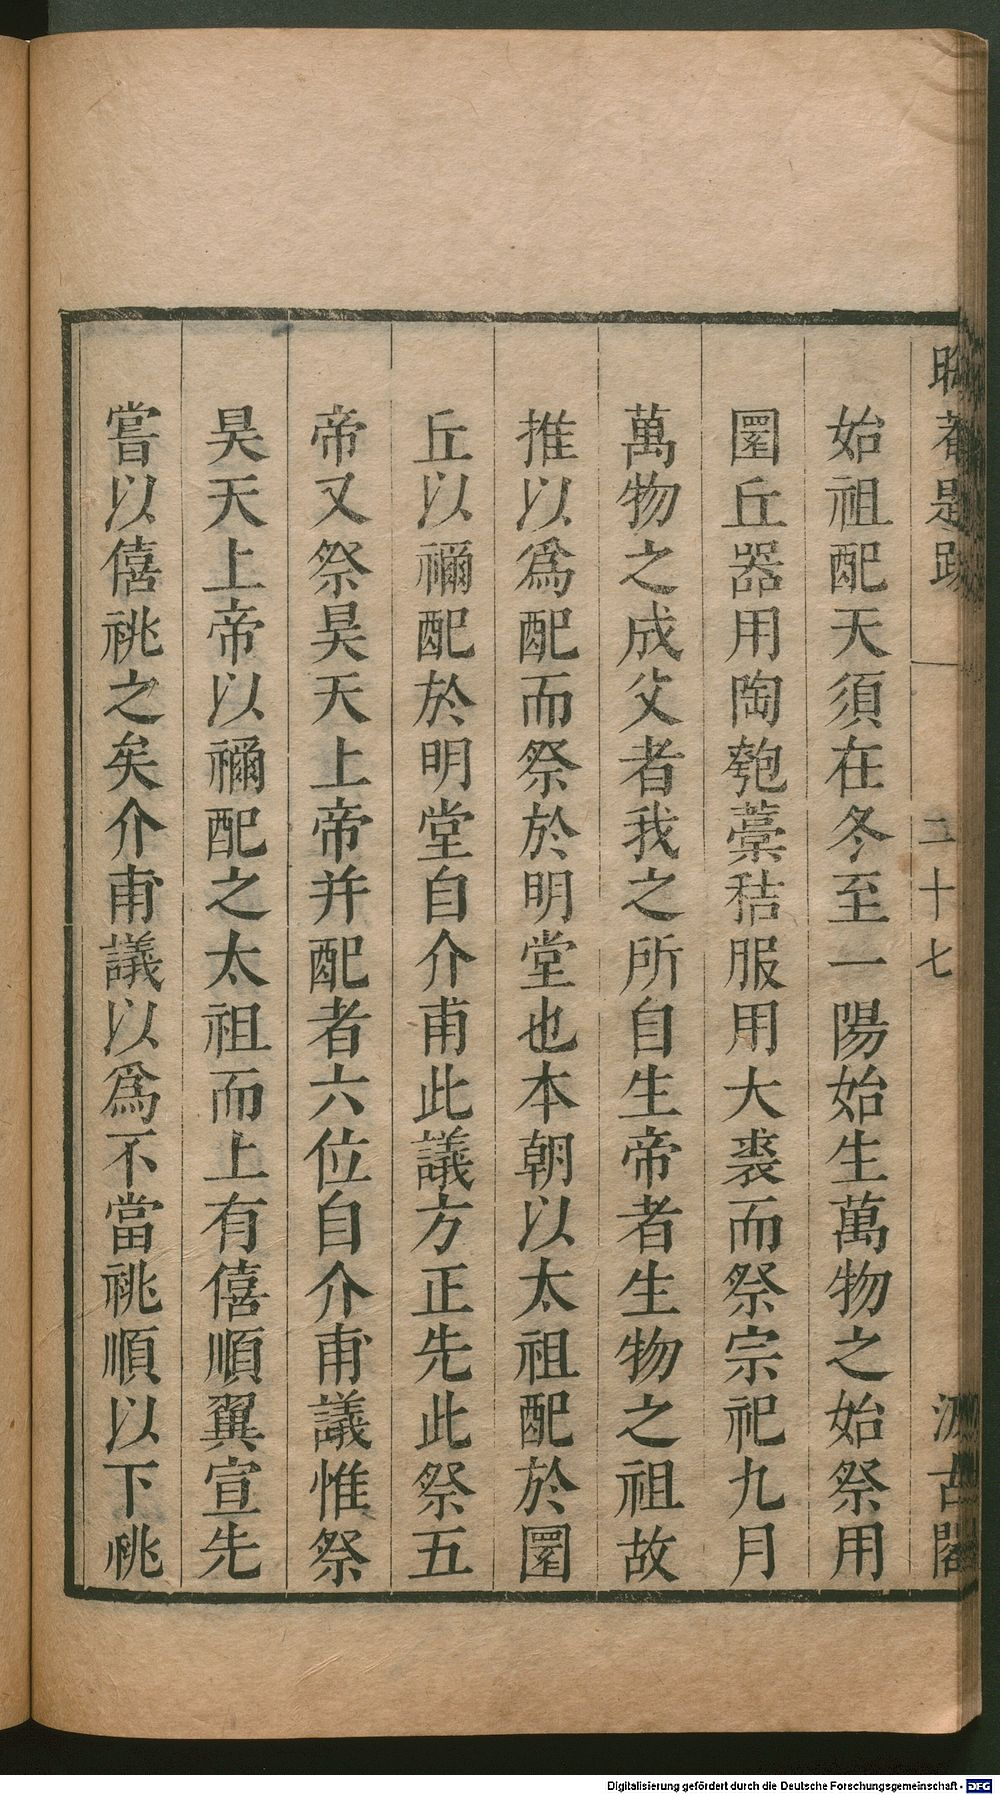 晦菴題跋 二十七 汲古閣
始祖配天須在冬至一陽始生萬物之始祭用
圜丘器用陶匏藁秸服用大裘而祭宗祀九月
萬物之成父者我之所自生帝者生物之祖故
推以爲配而祭於明堂也本朝以太祖配於圜
丘以禰配於明堂自介甫此議方正先此祭五
帝又祭昊天上帝并配者六位自介甫議惟祭
昊天上帝以禰配之太祖而上有僖順翼宣先
嘗以僖祧之矣介甫議以爲不當祧順以下祧
Digitalisierung gefördert durch die Deutsche Forschungsgemeinschaft - DFG